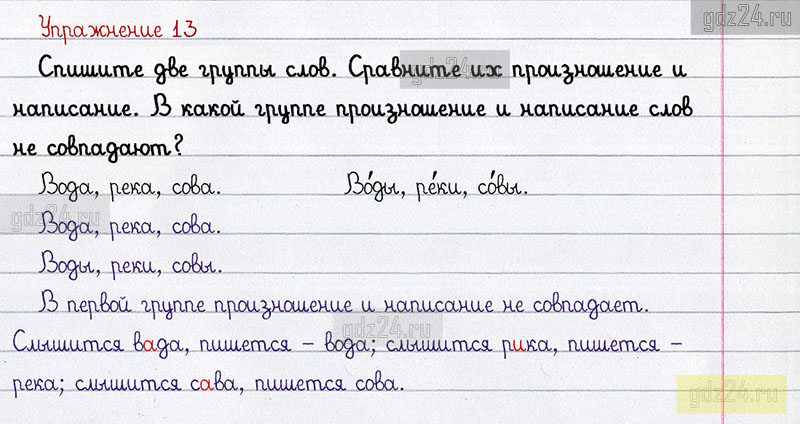 gdz24.ru
Упражнение 13
Спишите две группы слов. Сравните их произношение и
написание. В какой группе произношение и написание слов
не совпадают?
Вода, река, сова. Во́ды, ре́ки, со́вы.
gdz24.ru
Вода, река, сова.
Воды, реки, совы.
В первой группе произношение и написание не совпадает.
gdz24.ru
Слышится вада, пишется – вода; слышится рика, пишется –
река; слышится сава, пишется сова.
gdz24.ru